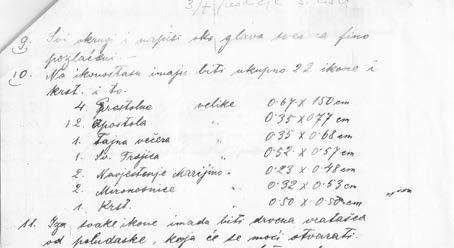 9. Svi okrugi i napisi oko glava svetca fino
pozlaćeni. —
10. Na ikonostasu imaju biti ukupno 22 ikone i
krst. i to.
4. Prestolne velike 0·67 X 150 cm
12. Apostola " 0·35 X 0·77 cm
1. Tajna večera " 0·35 X 0·68 cm
1. Sv. Trojica " 0·52 X 0·57 cm
2. Navještenje Marijino " 0·23 X 0·48 cm
2. Mironosnice " 0·32 X 0·53 cm
1. Krst. " 0·50 X 0·50 cm
11. Iza svake ikone imada biti drvena vratašca
od poludaske, koja će se moći otvarati.